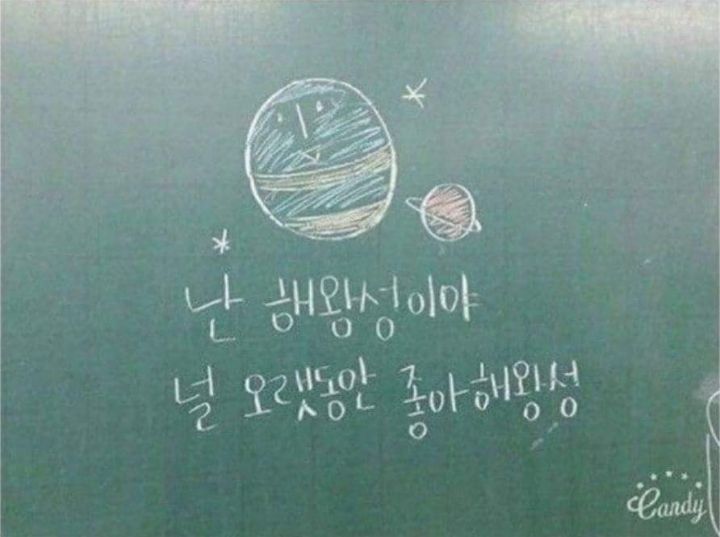 난 해왕성이야
널 오랫동안 좋아해왕성
Candy